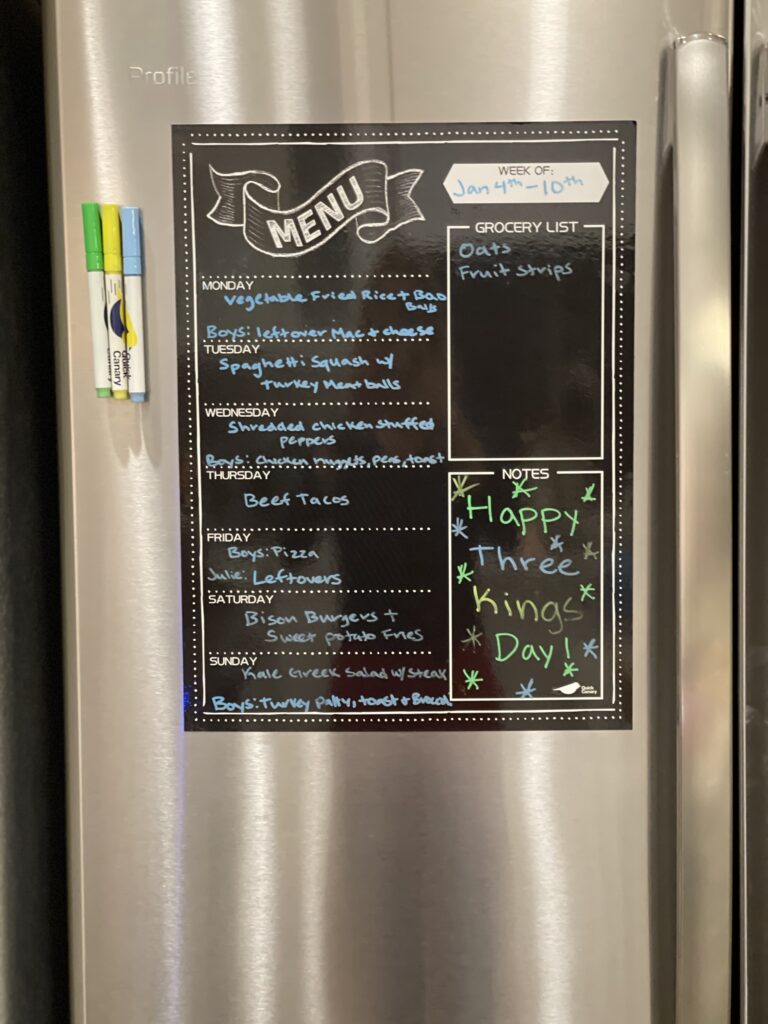 Profile
MENU
WEEK OF:
Jan 4th - 10th
MONDAY
Vegetable Fried Rice + Bao
Balls
Boys: leftover Mac + cheese
TUESDAY
Spaghetti Squash w/
Turkey Meatballs
WEDNESDAY
Shredded chicken stuffed
peppers
Boys: Chicken nuggets, peas, toast
THURSDAY
Beef Tacos
FRIDAY
Boys: Pizza
Julie: Leftovers
SATURDAY
Bison Burgers +
Sweet potato Fries
SUNDAY
Kale Greek Salad w/ Steak
Boys: Turkey patty, toast + Broccoli
GROCERY LIST
Oats
Fruit Strips
NOTES
Happy
Three
Kings
Day!
Quick
Canary
Quick
Canary